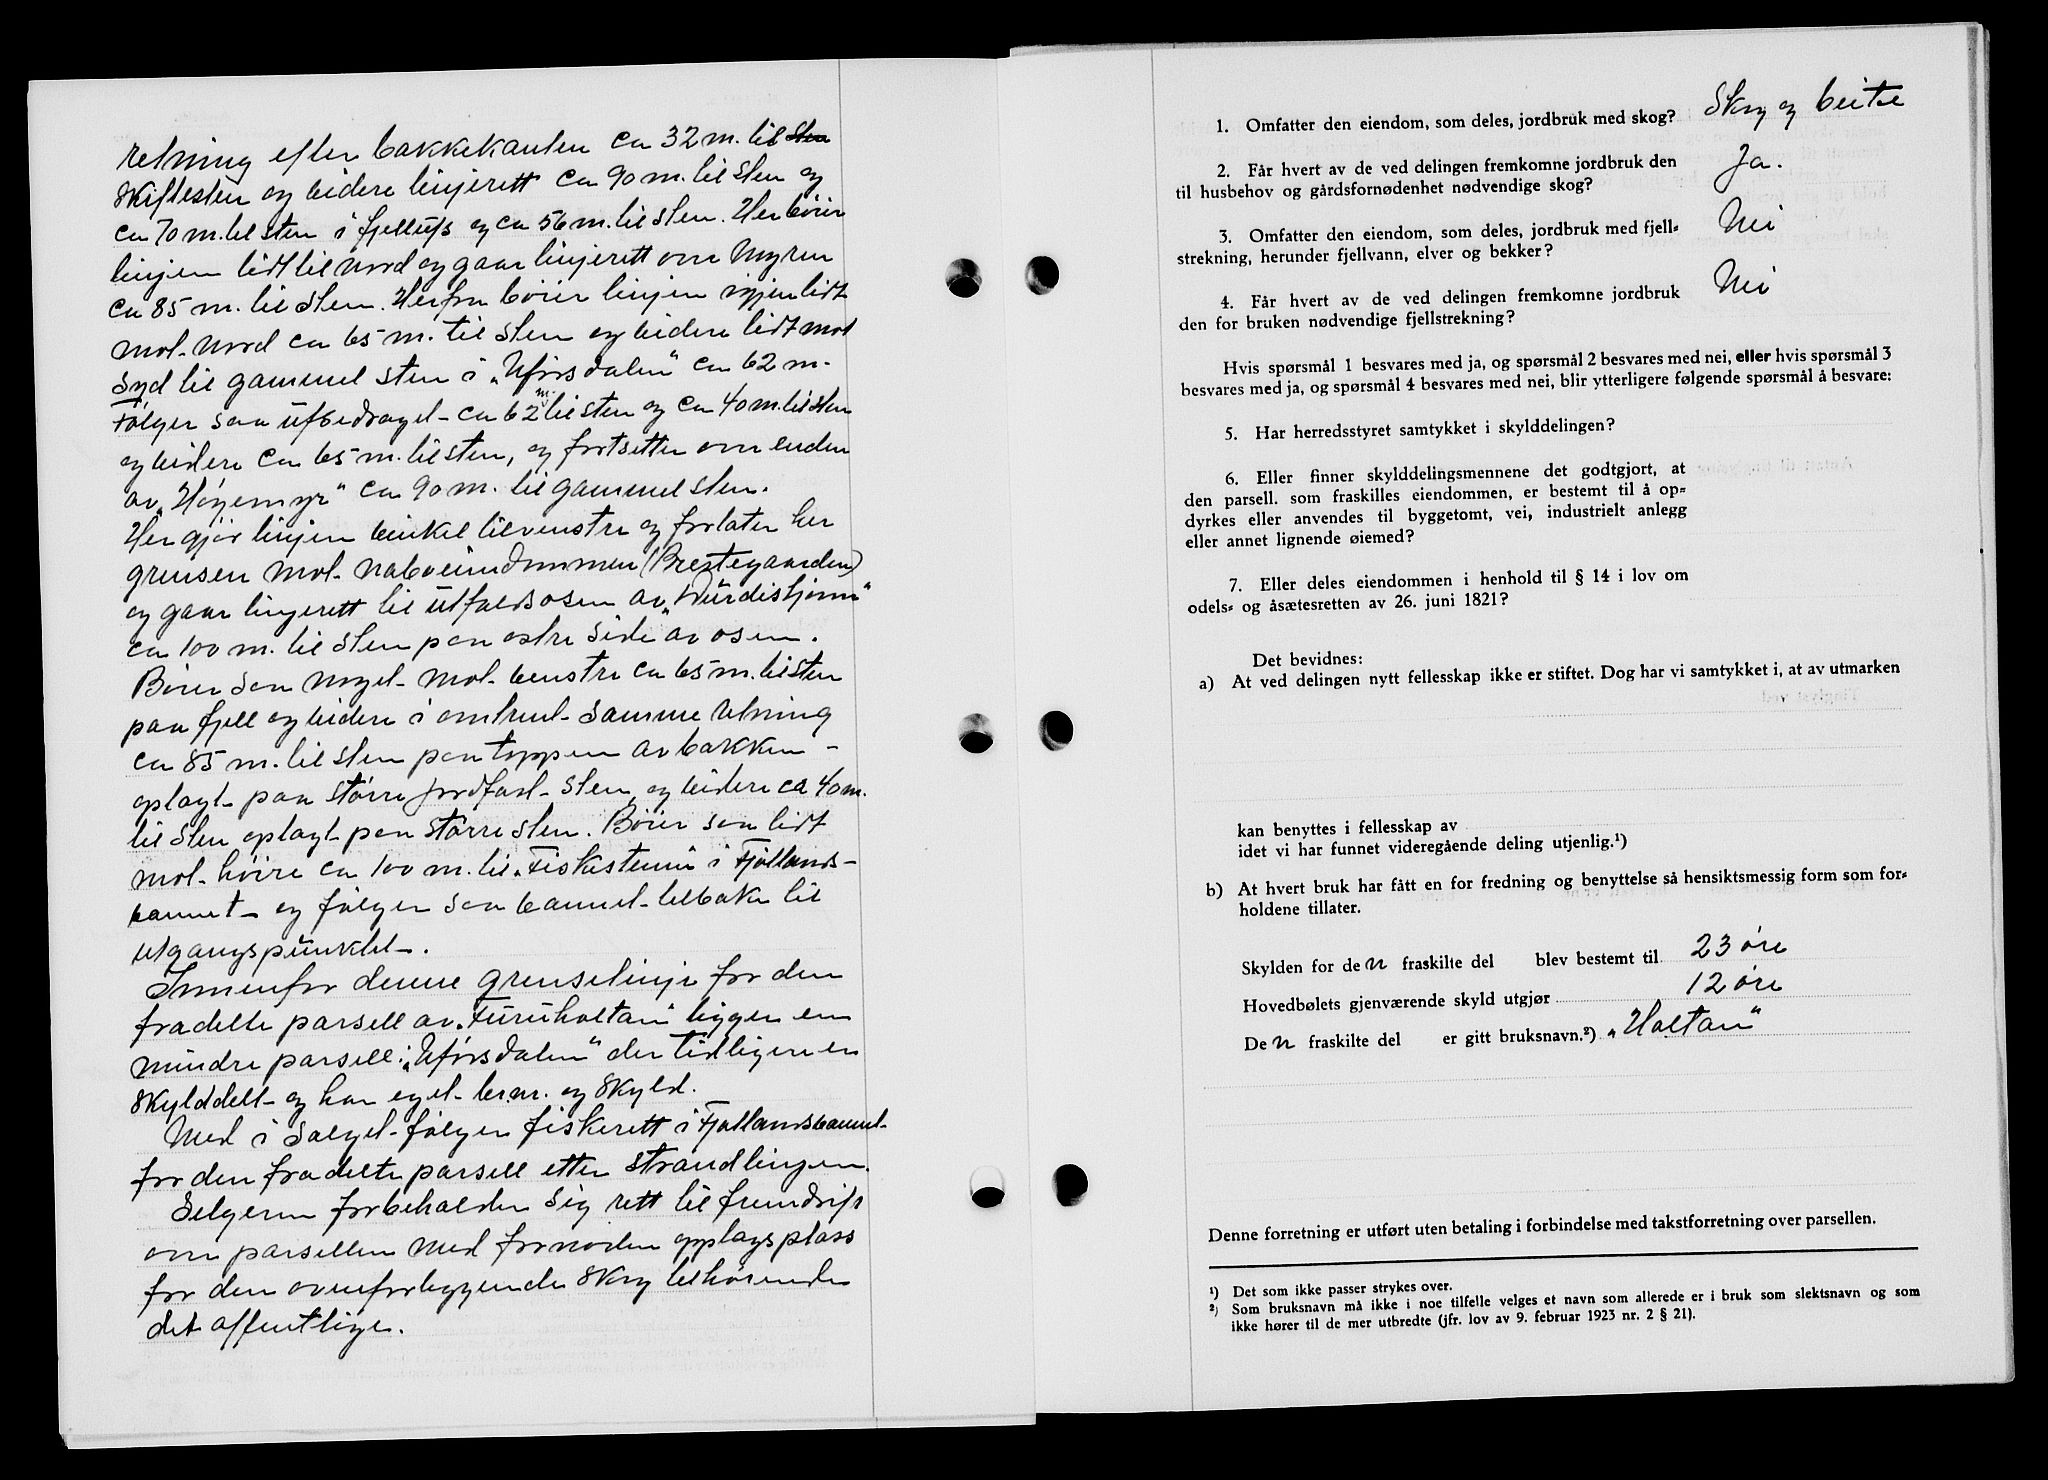 retning efter bakkekanten ca 32 m. til sten
Skiftesten og videre linjerett ca 90 m. til sten og
ca 70 m. til sten i fjellufs og ca 56 m. til sten. Her böier
linjen lidt til Nord og gaar linjerett over Myren
ca 85 m. til sten. Herfra böier linjen igjen lidt
mot Nord ca 65 m. til sten og videre lidt mot
Syd til gammel sten i „Ufsdalen" ca 62 m.
Følger saa ufsedraget ca 62 m. til sten og ca 40 m. til sten
og videre ca 65 m. til sten, og fortsetter over enden
av „Høyemyr" ca 90 m. til gammel sten.
Her gjør linjen vinkel til venstre og forlater her
grensen mot naboeiendommen (Prestegaarden)
og gaar linjerett til utfaldsosen av
ca 100 m. til sten paa østre side av osen.
Böier saa noget mot venstre ca 65 m. til sten
paa fjell og videre i omtrent samme retning
ca 85 m. til sten paa toppen av bakken -
oplagt paa større jordfast sten, og videre ca 40 m.
til sten oplagt paa større sten. Böier saa lidt
mot høire ca 100 m. til „Fiskesteinen" i Fjøllands-
vannet og følger saa vannet tilbake til
utgangspunktet.
Innenfor denne grenselinje for den
fradelte parsell av „Furuholtan" ligger en
mindre parsell: „Ufsdalen" der tidligere er
skylddelt og har eget br.nr. og skyld.
Med i salget følger fiskerett i Fjøllandsvannet
for den fradelte parsell etter strandlinjen.
Selgeren forbeholder sig rett til fremdrift
over parsellen med fornøden opplagsplass
for den ovenforliggende skog tilhørende
det offentlige.
1. Omfatter den eiendom, som deles, jordbruk med skog? Skog og beite
2. Får hvert av de ved delingen fremkomne jordbruk den
til husbehov og gårdsfornødenhet nødvendige skog? Ja.
3. Omfatter den eiendom, som deles, jordbruk med fjell-
strekning, herunder fjellvann, elver og bekker? Nei
4. Får hvert av de ved delingen fremkomne jordbruk
den for bruken nødvendige fjellstrekning? Nei
Hvis spørsmål 1 besvares med ja, og spørsmål 2 besvares med nei, eller hvis spørsmål 3
besvares med ja, og spørsmål 4 besvares med nei, blir ytterligere følgende spørsmål å besvare:
5. Har herredsstyret samtykket i skylddelingen?
6. Eller finner skylddelingsmennene det godtgjort, at
den parsell. som fraskilles eiendommen, er bestemt til å op-
dyrkes eller anvendes til byggetomt, vei, industrielt anlegg
eller annet lignende øiemed?
7. Eller deles eiendommen i henhold til § 14 i lov om
odels- og åsætesretten av 26. juni 1821?
Det bevidnes:
a) At ved delingen nytt fellesskap ikke er stiftet. Dog har vi samtykket i, at av utmarken
kan benyttes i fellesskap av
idet vi har funnet videregående deling utjenlig.¹)
b) At hvert bruk har fått en for fredning og benyttelse så hensiktsmessig form som for-
holdene tillater.
Skylden for den fraskilte del blev bestemt til 23 øre
Hovedbølets gjenværende skyld utgjør 12 øre
Den fraskilte del er gitt bruksnavn.²) „Holtan"
Denne forretning er utført uten betaling i forbindelse med takstforretning over parsellen.
¹) Det som ikke passer strykes over.
²) Som bruksnavn må ikke i noe tilfelle velges et navn som allerede er i bruk som slektsnavn og som
ikke hører til de mer utbredte (jfr. lov av 9. februar 1923 nr. 2 § 21).